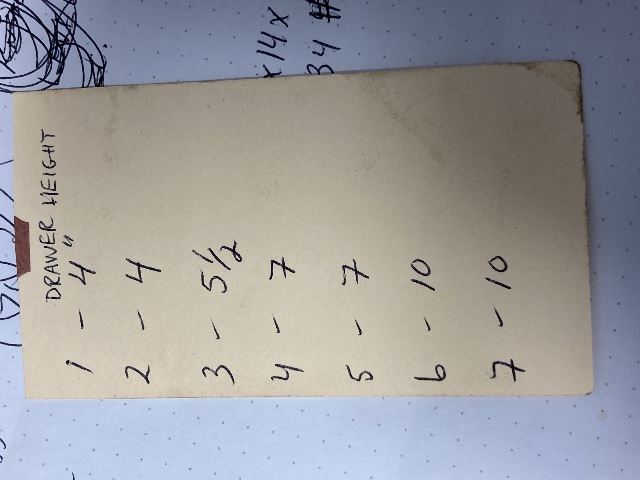 x14x
34 #
DRAWER HEIGHT
1 - 4"
2 - 4
3 - 5 1/2
4 - 7
5 - 7
6 - 10
7 - 10